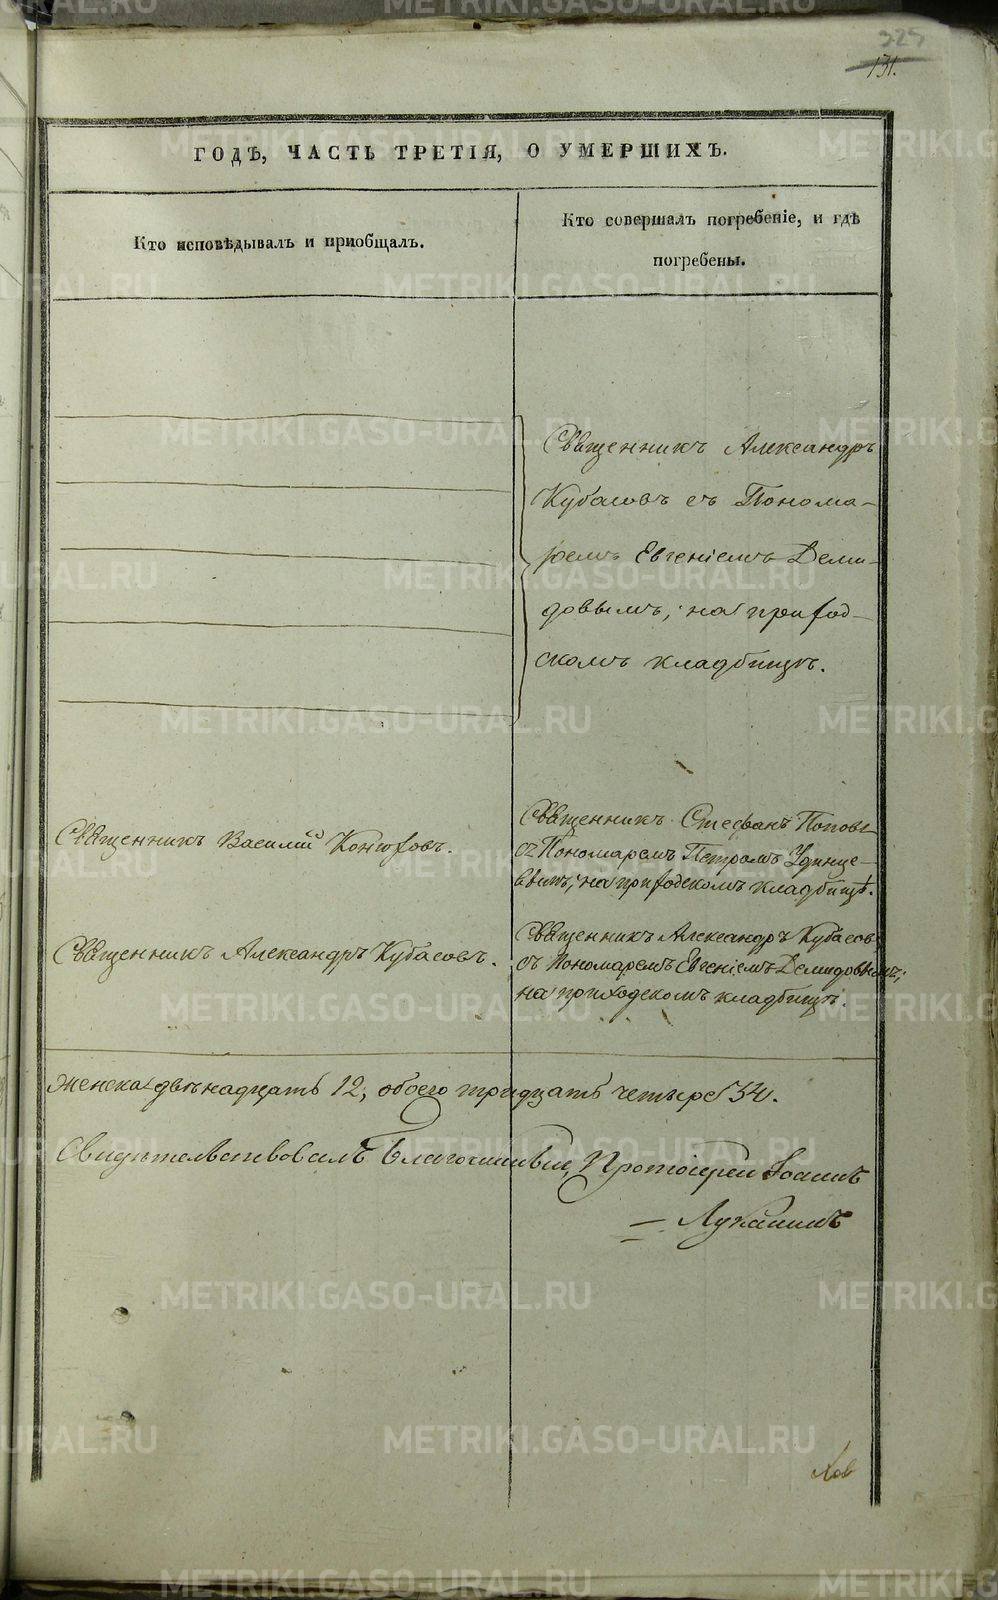 325
131.
ГОДЪ, ЧАСТЬ ТРЕТІЯ, О УМЕРШИХЪ.
Кто исповѣдывалъ и пріобщалъ.
Кто совершалъ погребеніе, и гдѣ
погребены.
Священникъ Александръ
Кубасовъ съ Понома-
ремъ Евгеніемъ Деми-
довымъ, на приход-
скомъ кладбищѣ.
Священникъ Василій Конюховъ.
Священникъ Стефанъ Поповъ
съ Пономаремъ Петромъ Удинце-
вымъ, на приходскомъ кладбищѣ.
Священникъ Александръ Кубасовъ.
Священникъ Александръ Кубасовъ
съ Пономаремъ Евгеніемъ Демидовымъ,
на приходскомъ кладбищѣ.
Женска двѣнадцать 12, обоего тридцать четыре 34.
Свидѣтельствовалъ Благочинный, Протоіерей Іоаннъ
Луканинъ
METRIKI.GASO-URAL.RU